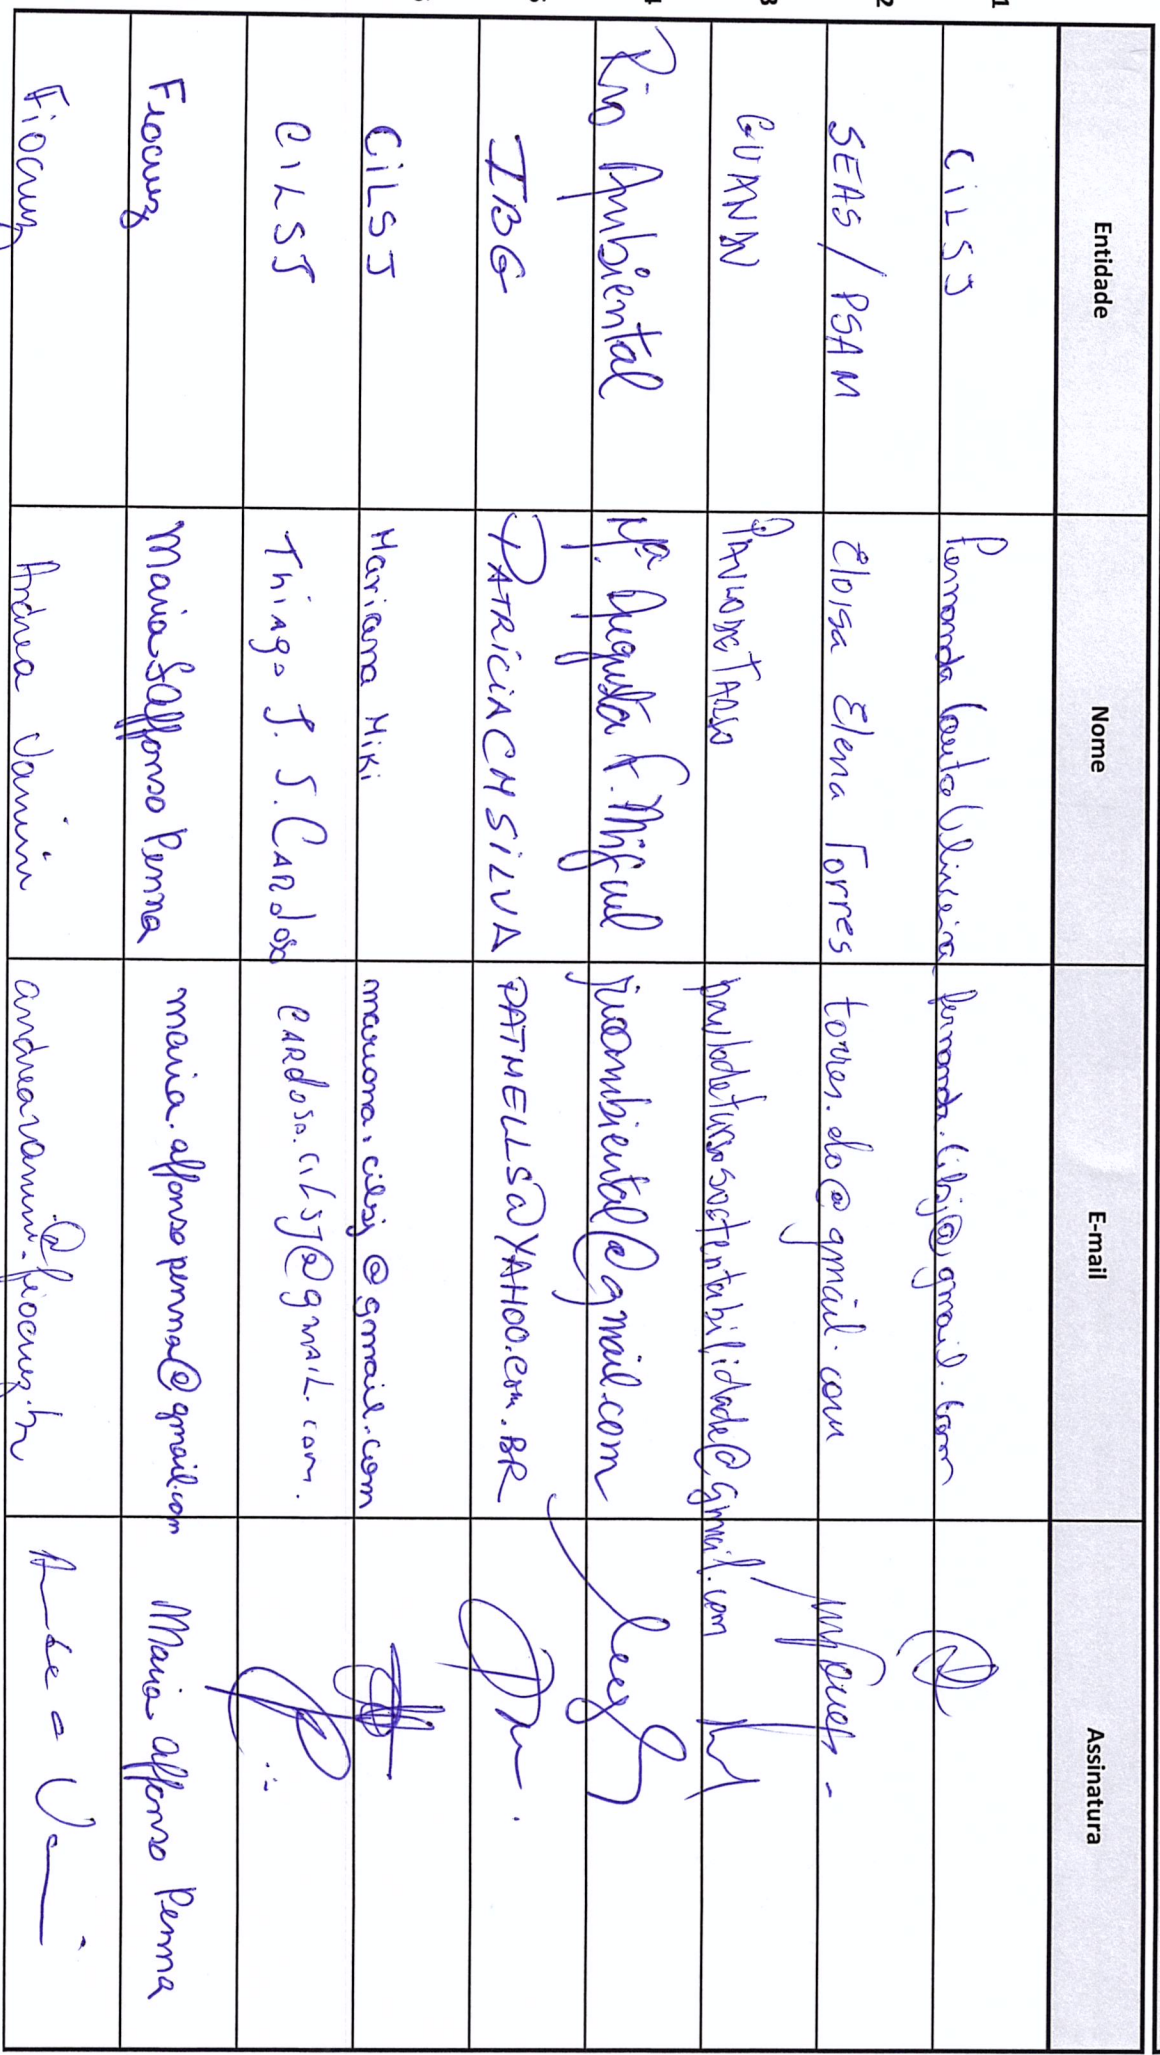 Entidade Nome E-mail Assinatura
1 CILSJ Fernanda Couto Oliveira fernanda.cilsj@gmail.com
2 SEAS / PSAM Eloisa Elena Torres torres.elo@gmail.com
3 GUANDU PAULO DE TARSO paulodetarsosostentabilidade@gmail.com
4 Rio Ambiental Mª Augusta F. Miguel rioambiental@gmail.com
5 IBG PATRICIA CM SILVA PATMELLS@YAHOO.COM.BR
CILSJ Mariana Miki mariana.cilsj@gmail.com
CILSJ Thiago J. S. Cardoso CARdoso.CILSJ@gmAIL.com.
Fiocruz Maria S Affonso Penna maria.affonsopenna@gmail.com Maria Affonso Penna
Fiocruz Andrea Vanini andrea.vanini@fiocruz.br